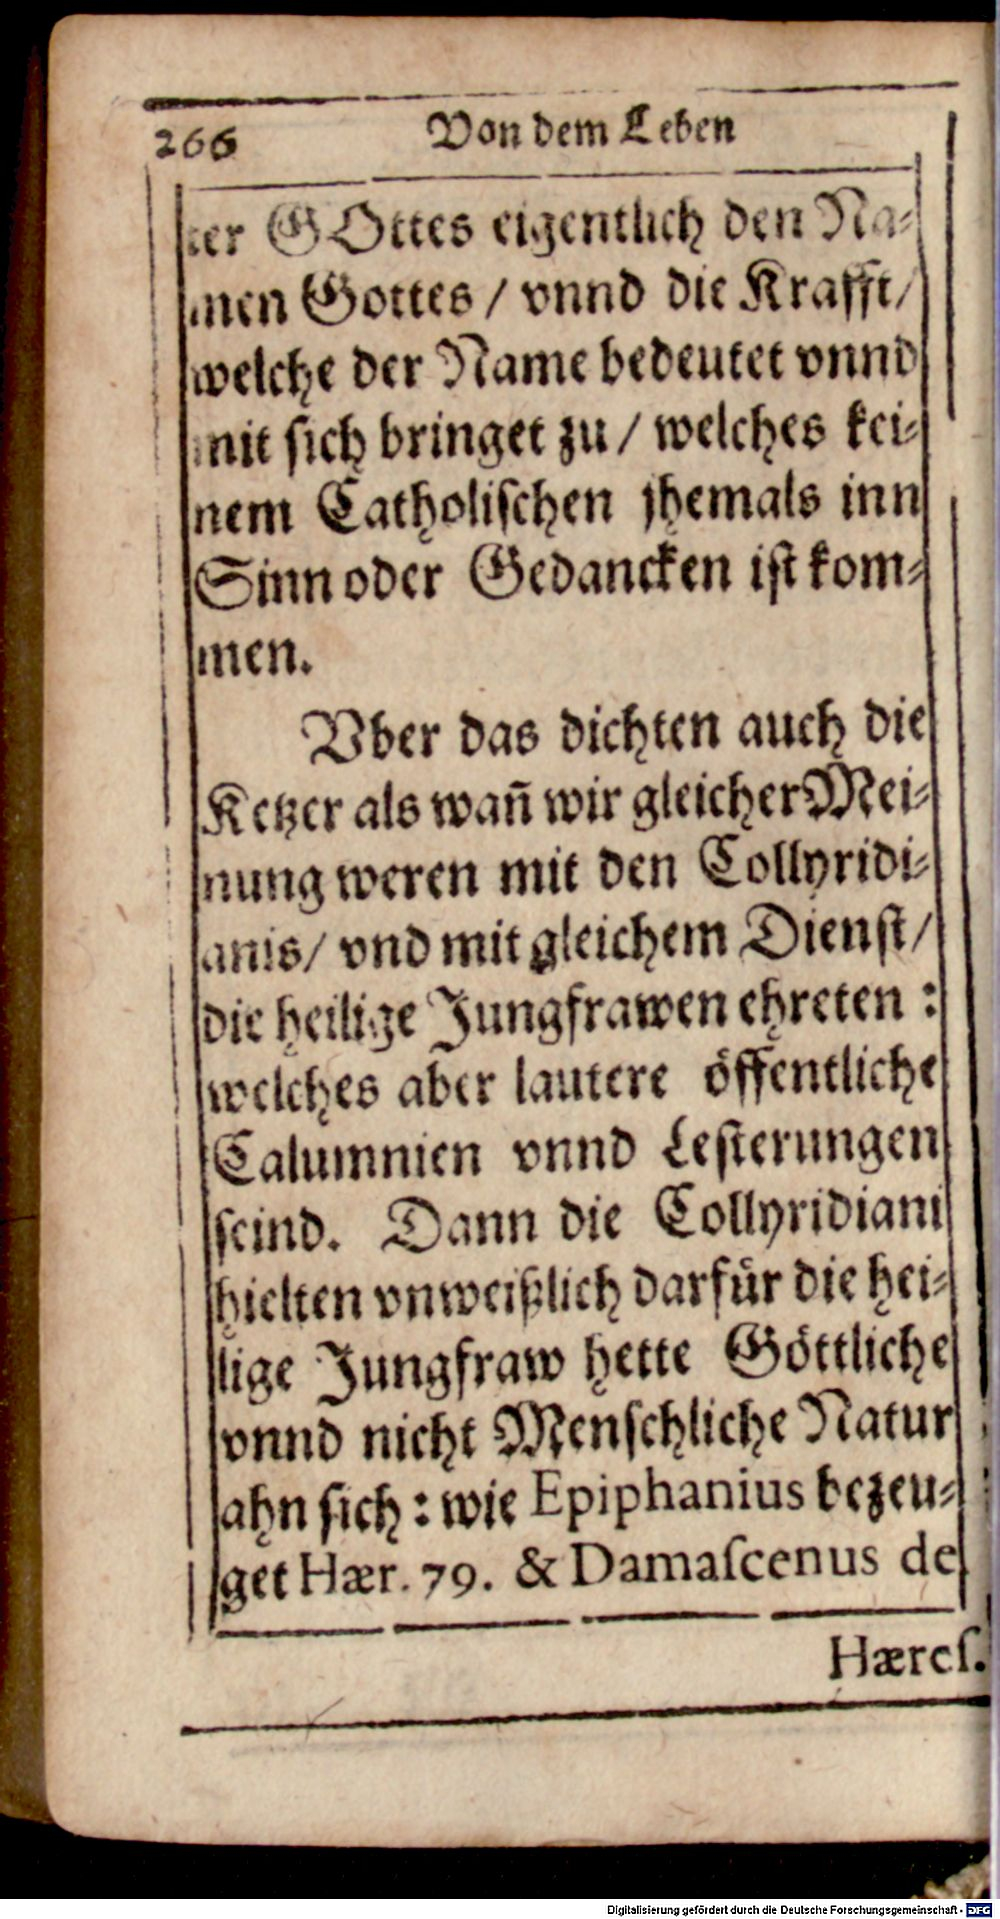 266 Von dem Leben
ter GOttes eigentlich den Na-
men Gottes / vnnd die Krafft /
welche der Name bedeutet vnnd
mit sich bringet zu / welches kei-
nem Catholiſchen jhemals inn
Sinn oder Gedancken iſt kom-
men.
Vber das dichten auch die
Ketzer als wan̄ wir gleicher Mei-
nung weren mit den Collyridi-
anis / vnd mit gleichem Dienſt /
die heilige Jungfrawen ehreten :
welches aber lautere öffentliche
Calumnien vnnd Leſterungen
ſeind. Dann die Collyridiani
hielten vnweißlich darfür die hei-
lige Jungfraw hette Göttliche
vnnd nicht Menſchliche Natur
ahn ſich : wie Epiphanius bezeu-
get Hær. 79. & Damaſcenus de
Hæreſ.
Digitalisierung gefördert durch die Deutsche Forschungsgemeinschaft - DFG